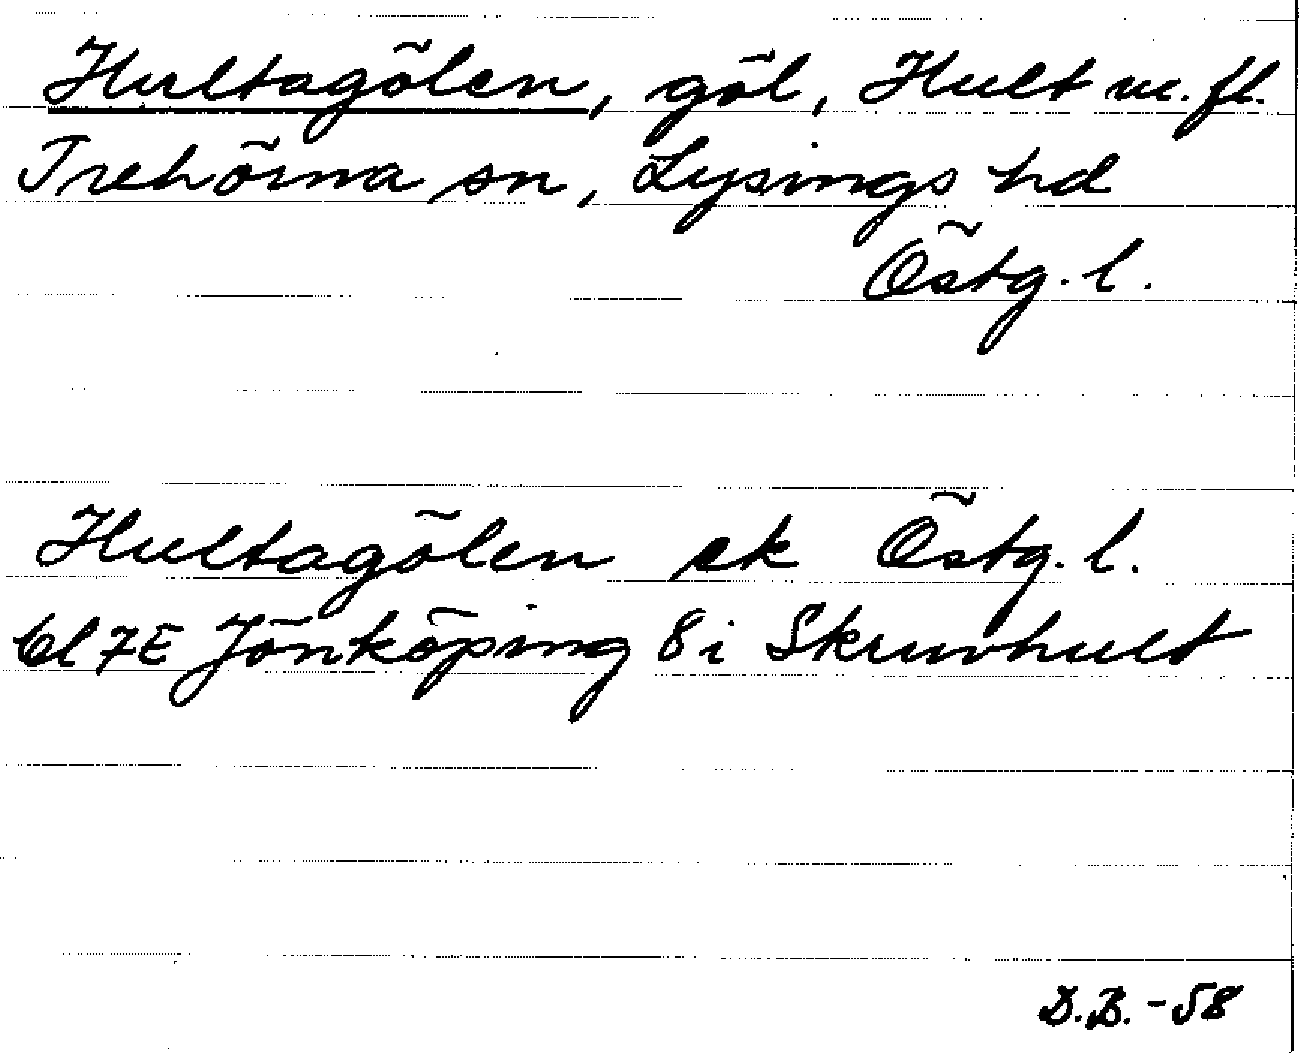 Hultagölen, göl, Hult m.fl.
Trehörna sn, Lysings hd
Östg. l.
Hultagölen ek Östg. l.
bl 7E Jönköping 8i Skruvhult
D.B. -58